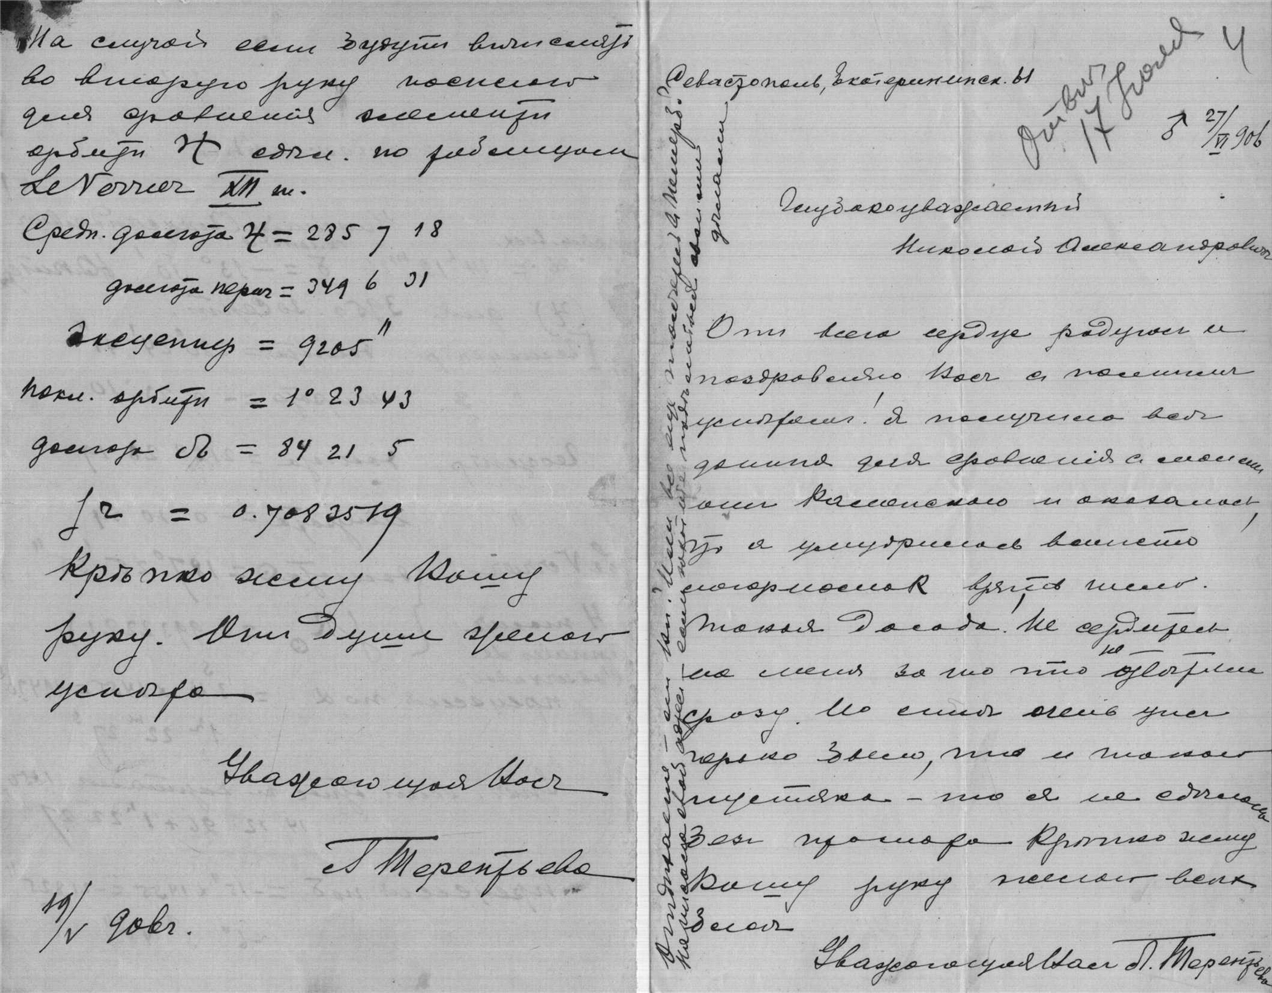 На случай если будут вычислять
во вторую руку посылаю
для сравненія элементы
орбиты ♃ сдѣл. по таблицам
Le Verrier XII т.
Средн. долгота ♃ = 285 7 18
долгота периг = 349 6 31
эксцентр = 9205"
накл. орбиты = 1° 23 43
долгота ☊ = 84 21 5
= 0.7083519
Крѣпко жму Вашу
руку. Отъ души желаю
успѣха
Уважающая Васъ
Л Терентьева
19/V 906г.
4
Отвѣч
17 Іюля
Севастополь, Екатерининск. 61
♂ 27/VI 906
Глубокоуважаемый
Николай Александровичъ
Отъ всего сердца радуюсь и
поздравляю Васъ съ полнымъ
успѣхомъ! Я получила всѣ
данныя для сравненія съ моими
отъ Каменскаго и оказалось,
что я умудрилась вмѣсто
логариѳма взять число.
Такая досада! Не сердитесь
на меня за то что не отвѣтила
сразу. Но мнѣ очень уже
горько было, что и такого
пустяка - то я не сдѣлала
безъ промаха Крѣпко жму
Вашу руку желаю всѣхъ
благъ
Уважающая Васъ Л. Терентьева